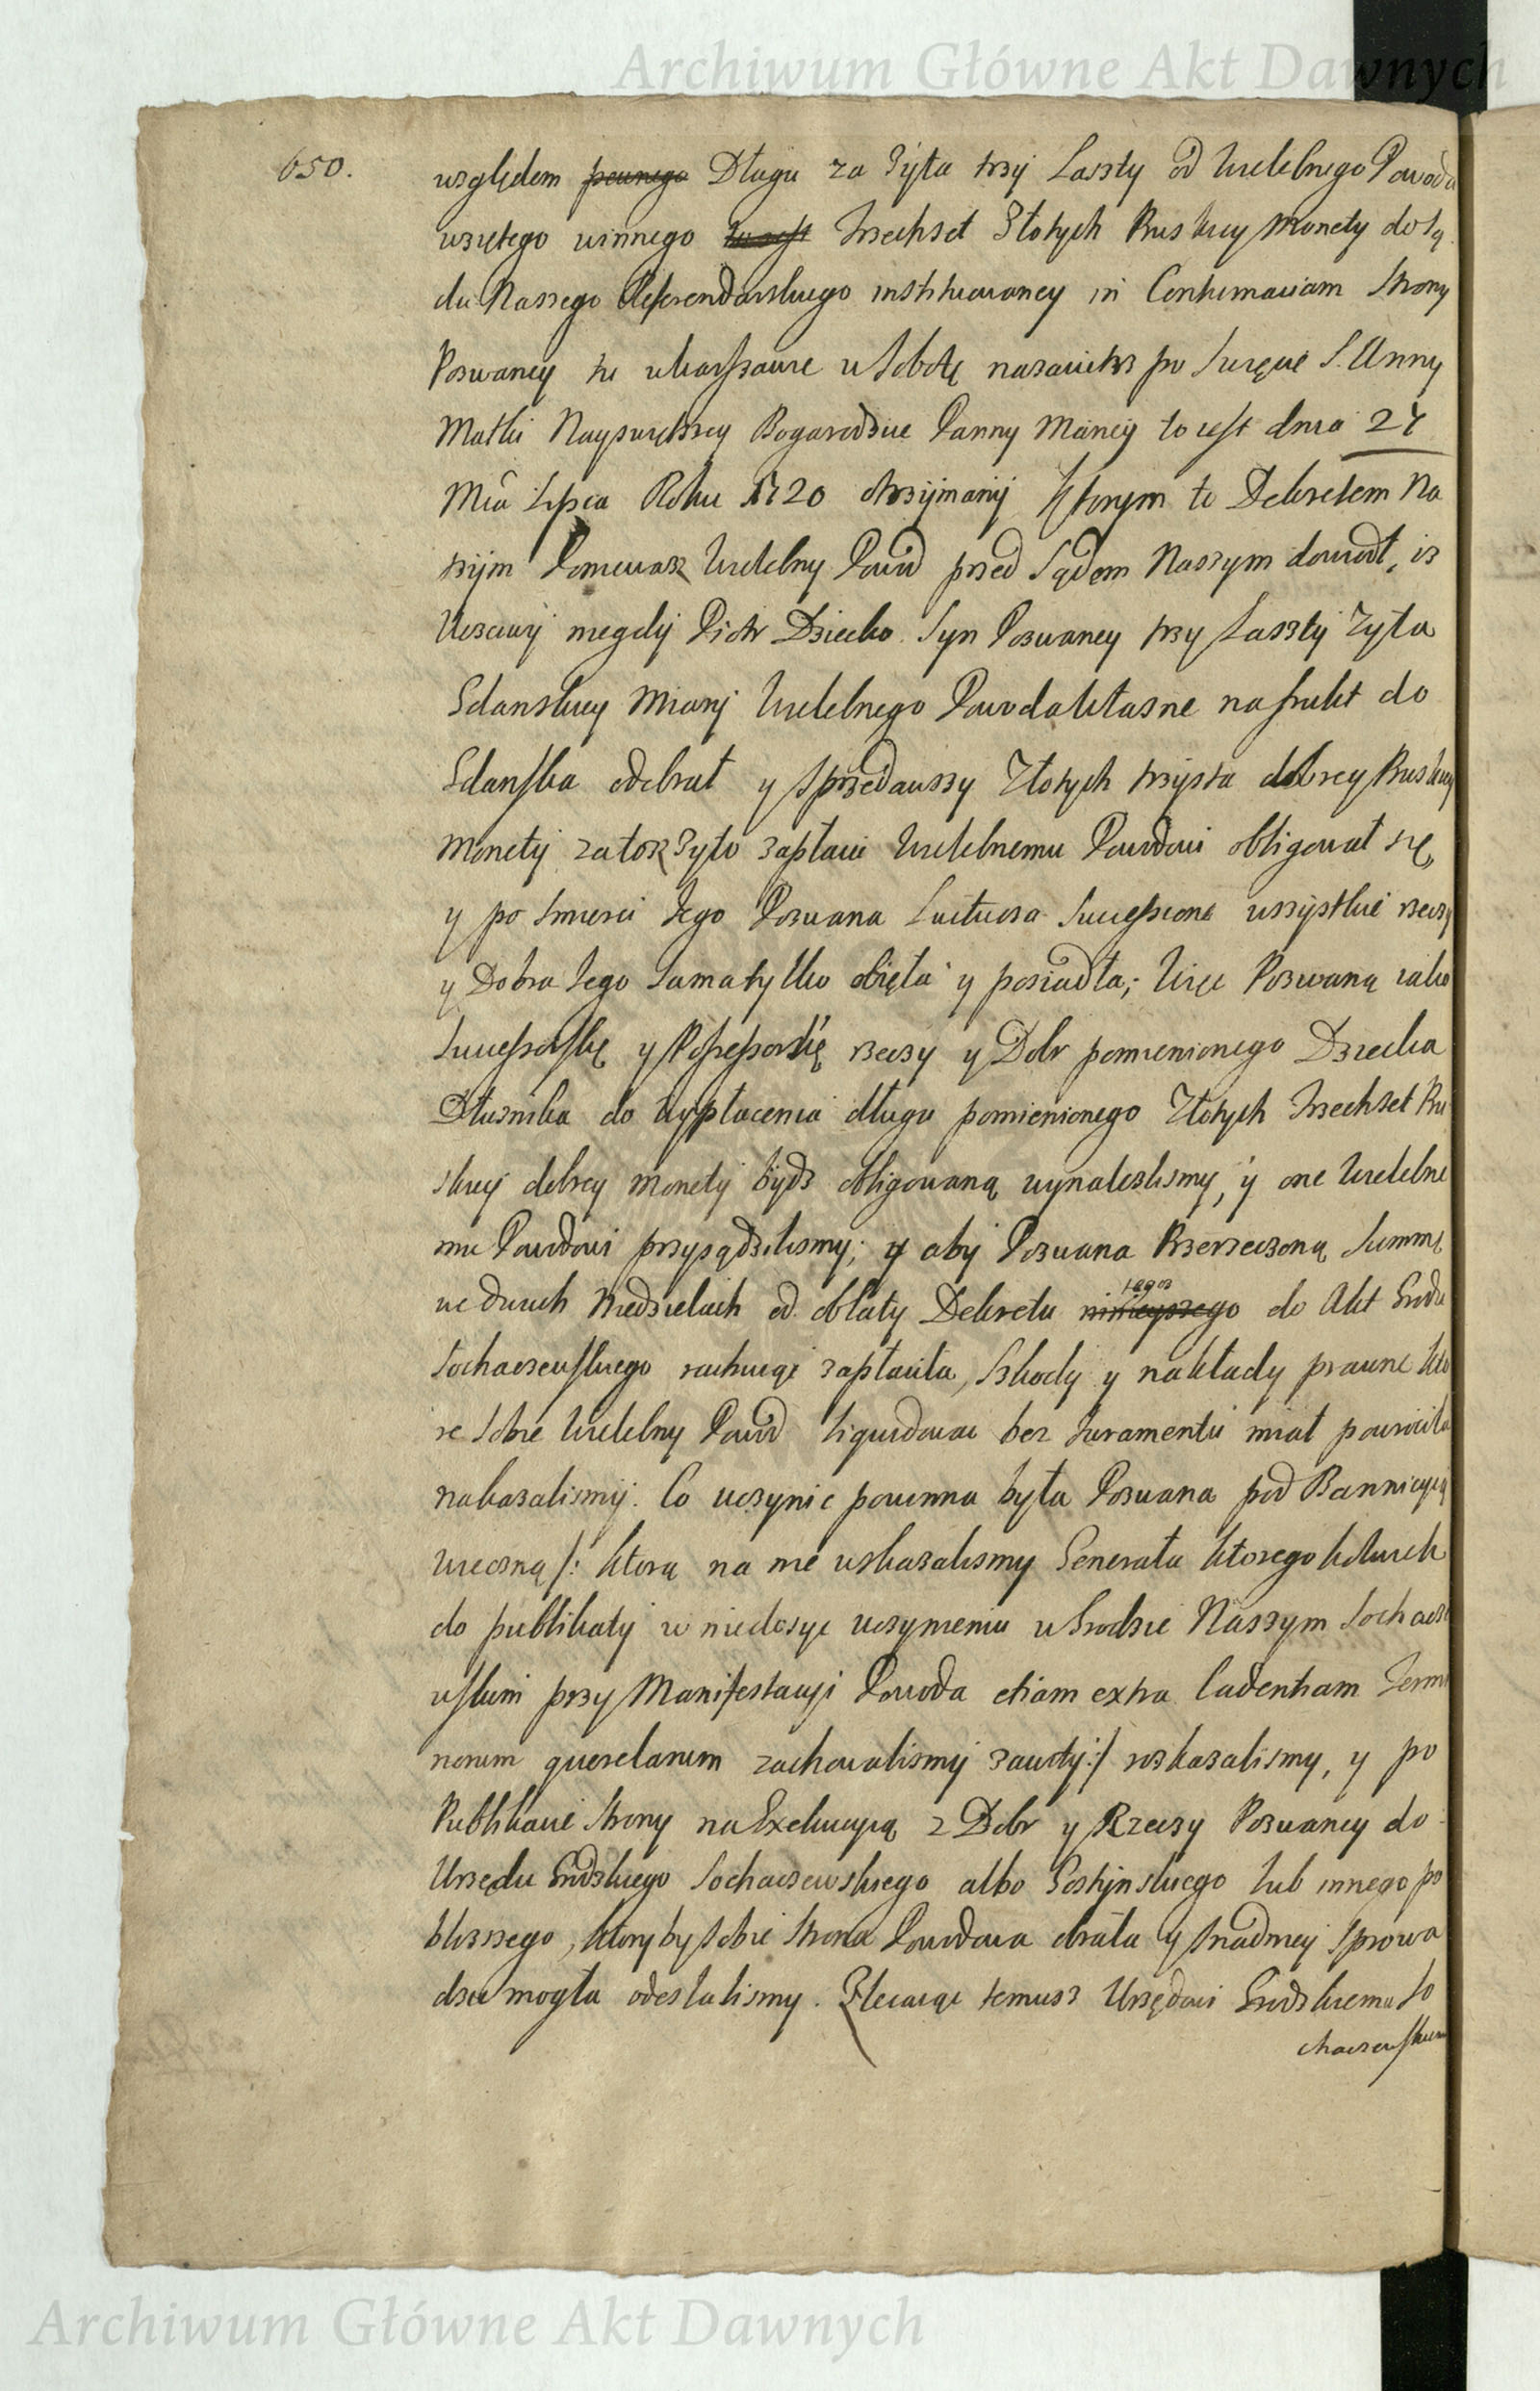 Archiwum Główne Akt Dawnych
650.
względem pewnego Długu za Żyta trzy Laszty od Wielebnego Powoda
wziętego winnego to iest Trzechset Złotych Ruskiey Monety do Są
du Naszego Referendarskiego instituowaney in Contumaciam Strony
Pozwaney tu w Warszawie w Sobotę nazaiutrz po Swięcie S. Anny
Matki Nayswiętszey Bogarodzice Panny Mariey to iest dnia 27
Mca Lipca Roku 1720 otrzymany Ktorym to Dekretem Na
szym Poniewasz Wielebny Powod przed Sądem Naszym dowodł, iz
Uczciwy niegdy Piotr Dziecko Syn Pozwaney trzy Laszty Zyta
Gdanskiey Miary Wielebnego Powoda własne na frukt do
Gdanska odebrał y sprzedawszy Złotych trzysta dobrey Ruskiey
Monety za tosz Zyto zapłacic Wielebnemu Powodowi obligował się,
y po smierci Iego Pozwana Luctuosa Successione wszystkie rzeczy
y Dobra Iego Sama tylko obięła y posiadła; Więc Pozwaną iako
Successorkę y Possessorkę rzeczy y Dobr pomienionego Dziecka
Dłusnika do wypłacenia długu pomienionego Złotych Trzechset Ru
skiey dobrey monety bydz obligowaną wynalezlismy, y one Wielebne
mu Powodowi przysądzilismy; y aby Pozwana Rzerzeczoną Summę
we dwuch Niedzielach od oblaty Dekretu ninieyszego tegoz do Akt Grodu
Sochaczewskiego rachuiąc zapłaciła, Szkody y nakłady prawne kto
re sobie Wielebny Powod liquidowac bez Iuramentu miał powrociła
nakazalismy. Co uczynic powinna była Pozwana pod Bannicyią
wieczną /: ktorą na nię wskazalismy Generała ktoregokolwiek
do publikaty w niedosyc uczynieniu w Grodzie Naszym Sochacze
wskim przy Manifestacyi Powoda etiam extra Cadentiam Termi
norum querelarum zachowalismy zawity :/ wskazalismy, y po
Publikacie Strony na Exekucyią z Dobr y Rzeczy Pozwaney do
Urzędu Grodzkiego Sochaczewskiego albo Gostynskiego lub innego po
blizszego, ktoryby sobie Strona Powodowa obrała y snadniey sprowa
dzic mogła odesłalismy. Zlecaiąc temusz Urzędowi Grodzkiemu So
chaczewskiem
Archiwum Główne Akt Dawnych